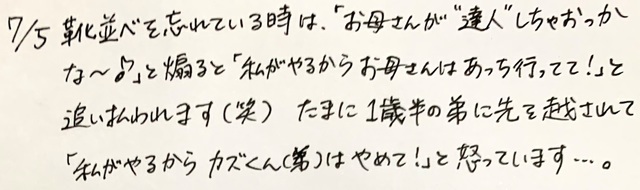 7/5 靴並べを忘れている時は、「お母さんが“達人”しちゃおっか
な〜♪」と煽ると「私がやるからお母さんはあっち行ってて!」と
追い払われます(笑) たまに1歳半の弟に先を越されて
「私がやるからカズくん(弟)はやめて!」と怒っています…。